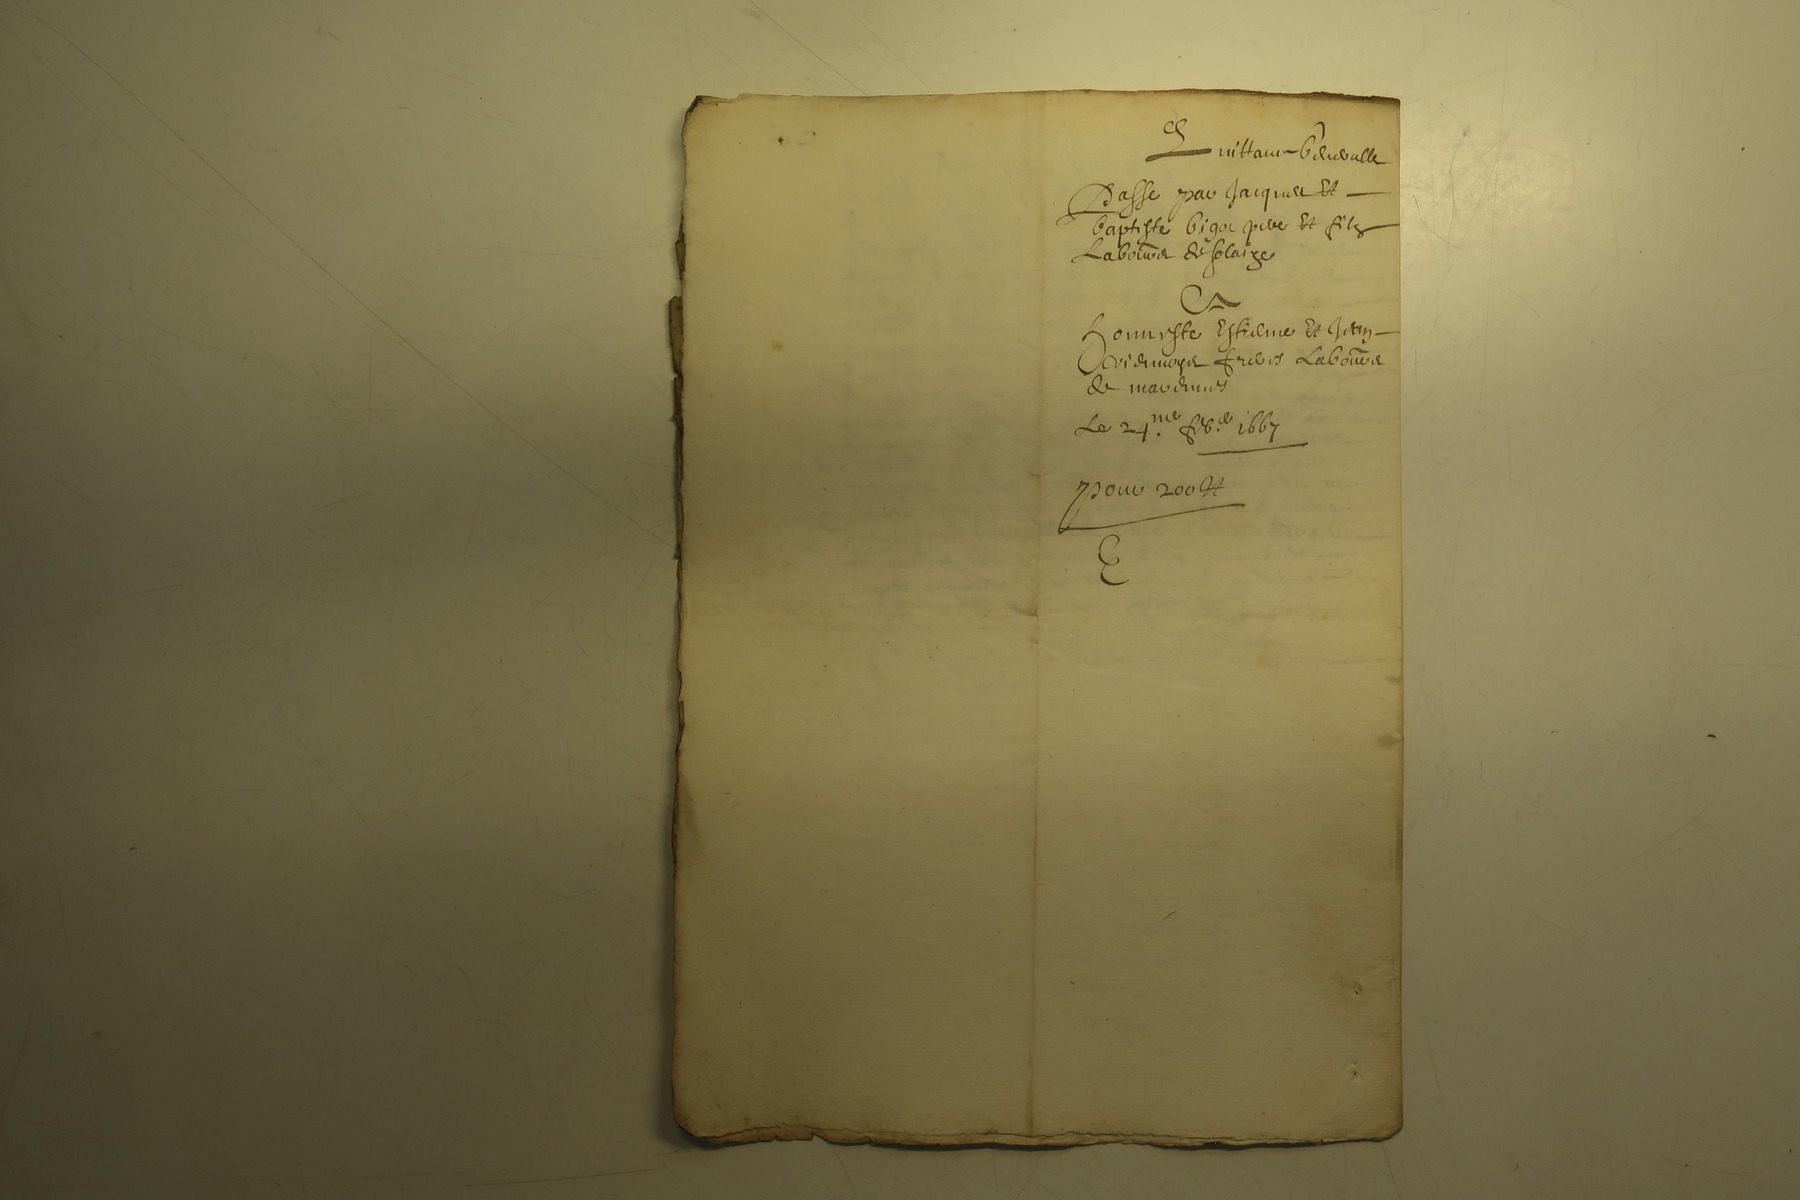 Quittance generalle
Passe par Jacques Et
baptiste bigot pere Et filz
Laboure de solaize
A
honneste Estienne Et Jean
freres Laboure
de marennes
Le 24.me 1667
pour 200 tt
E